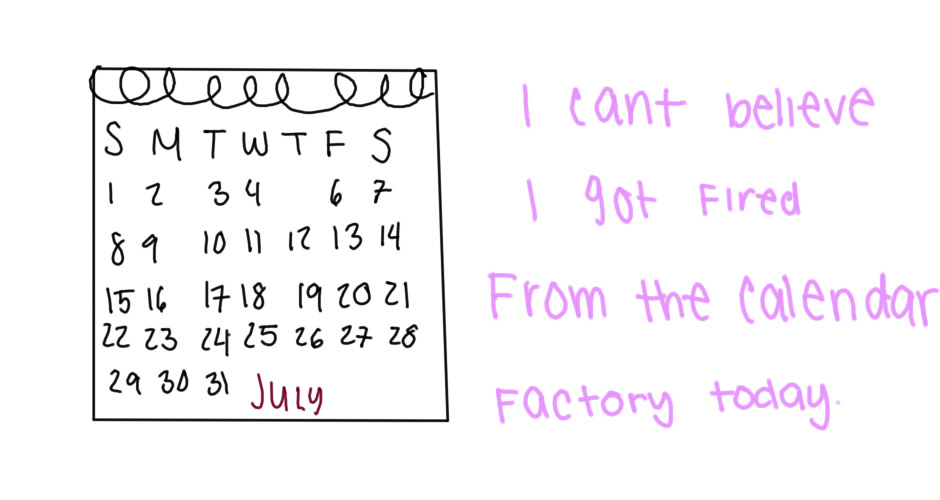 S M T W T F S
1 2 3 4 6 7
8 9 10 11 12 13 14
15 16 17 18 19 20 21
22 23 24 25 26 27 28
29 30 31 July
I cant believe
I got Fired
From the calendar
Factory today.